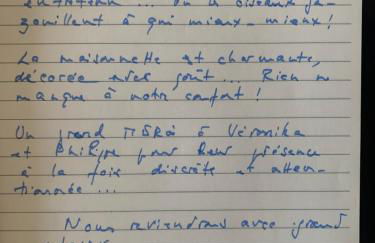 entretenu ... où les oiseaux ga-
zouillent à qui mieux-mieux !
La maisonnette est charmante,
décorée avec goût ... Rien ne
manque à notre confort !
Un grand MERCI à Véronika
et Philippe pour leur présence
à la fois discrète et atten-
tionnée ...
Nous reviendrons avec grand